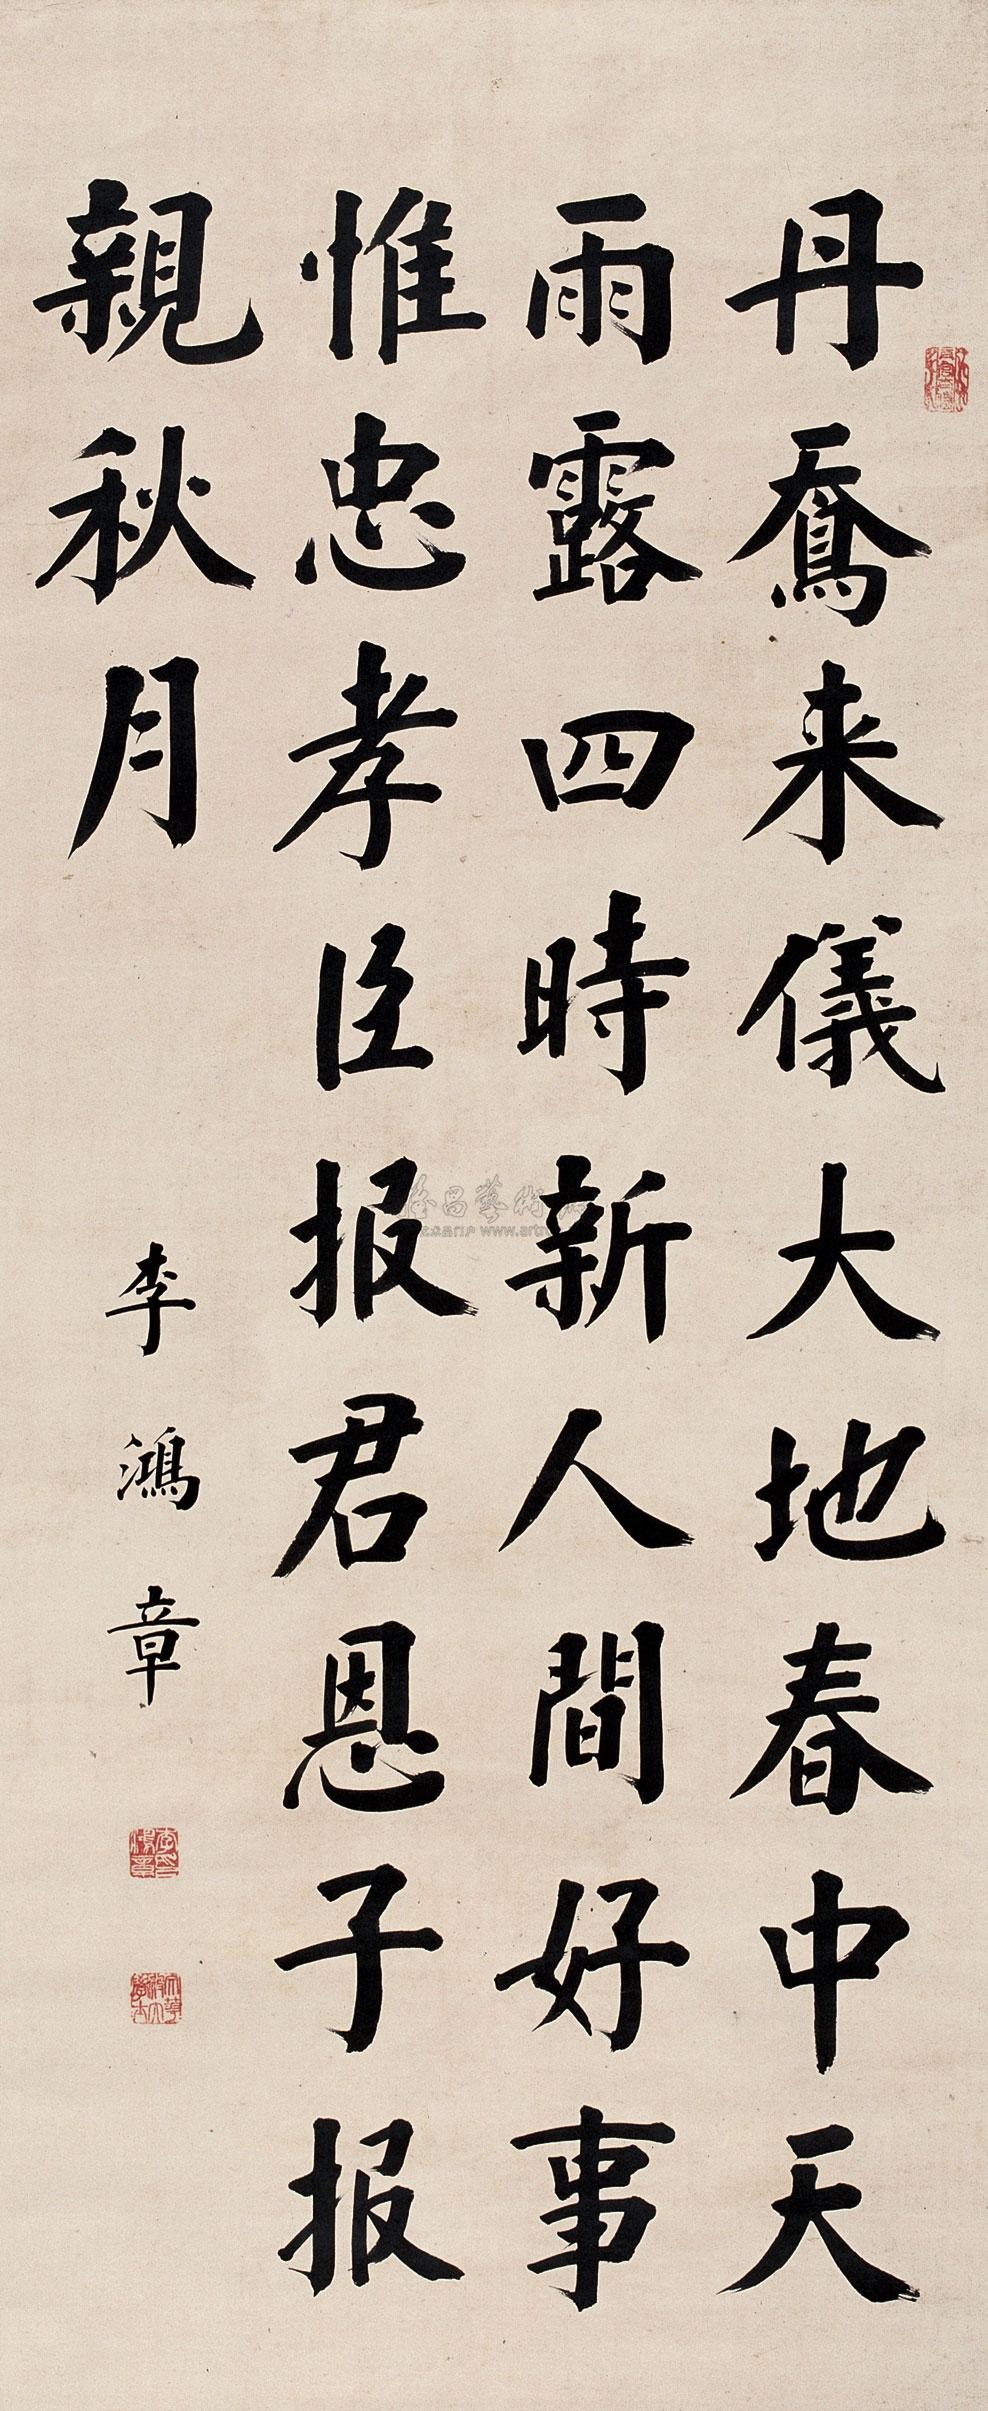 丹鳳来儀大地春中天
雨露四時新人間好事
惟忠孝臣报君恩子报
親秋月
李鴻章